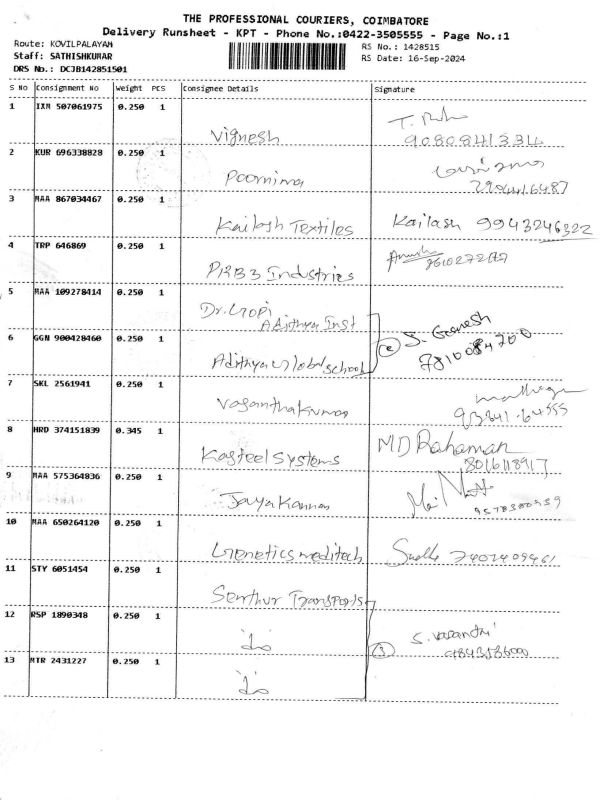 THE PROFESSIONAL COURIERS, COIMBATORE
Delivery Runsheet - KPT - Phone No.:0422-3505555 - Page No.:1
Route: KOVILPALAYAM
RS No.: 1428515
Staff: SATHISHKUMAR
RS Date: 16-Sep-2024
DRS No.: DCJB142851501
S No Consignment No Weight PCS Consignee Details Signature
1 IXM 507061975 0.250 1
Vignesh
9080841334
2 KUR 696338828 0.250 1
Poornima
3 MAA 867034467 0.250 1
Kailash Textiles Kailash 9943246322
4 TRP 646869 0.250 1
PRB3 Industries
5 MAA 109278414 0.250 1
Dr. Gopi
Adithya Inst
6 GGN 900428460 0.250 1
S. Ganesh
Adithya Global School
7810084700
7 SKL 2561941 0.250 1
Vasanthakumar
8 HRD 374151839 0.345 1
MD Rahaman
Kasteel Systems
8016118917
9 MAA 575364836 0.250 1
Jayakannan
10 MAA 650264120 0.250 1
Genetics meditech 7402409461
11 STY 6051454 0.250 1
Senthur Transports
12 RSP 1890348 0.250 1
S. Vasanthi
3
13 MTR 2431227 0.250 1